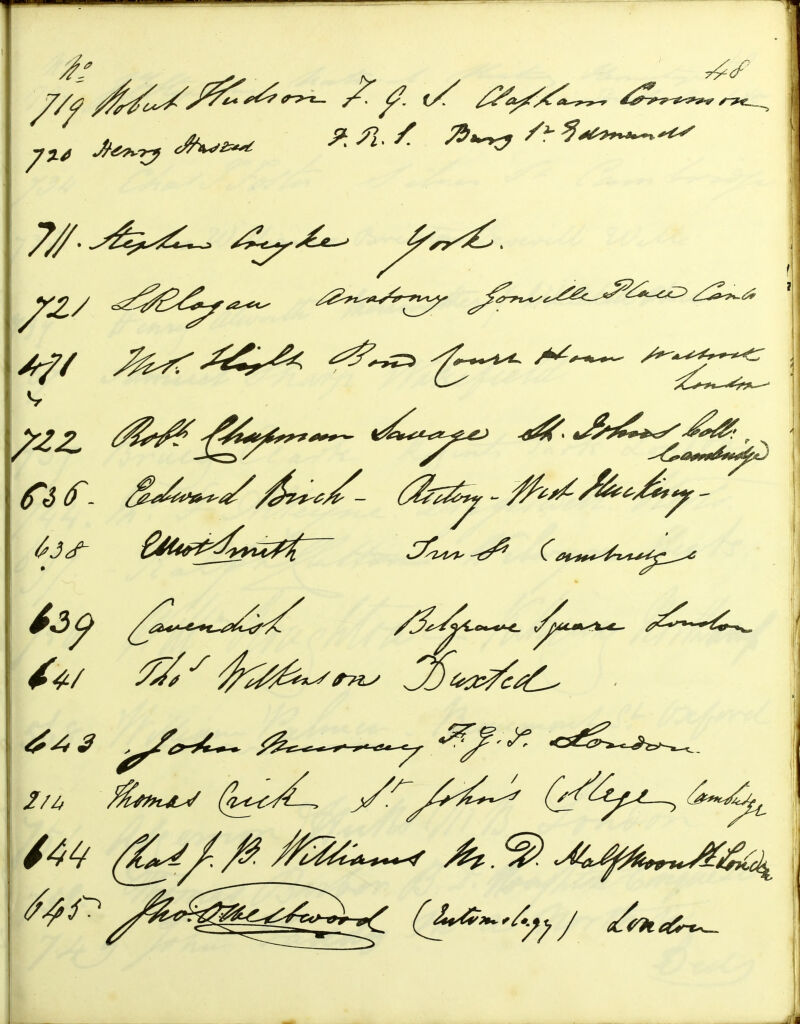 No 48
719 Robert Hudson F. G. S. Clapham Common
720 Henry Hasted F. R. S. Bury St Edmunds
711. Stephen Creyke York.
721 Anatomy Gonville Place Camb
471 Bond Court House Walbrook
London
722 Robt. Chapman Savage St. Johns Coll:
Cambridge
636. Edward Birch - Rectory - West
638 Elliot Smith St Cambridge
639 Cavendish Belgrave Square London
641 Thos Wilkinson
643 John Murray F. G. S. London.
214 Thomas Crick St John's College Cambridge
644 Chas J. B. Williams M. D. Halfmoon St London
645. Jno: O. Westwood (Entomology) London